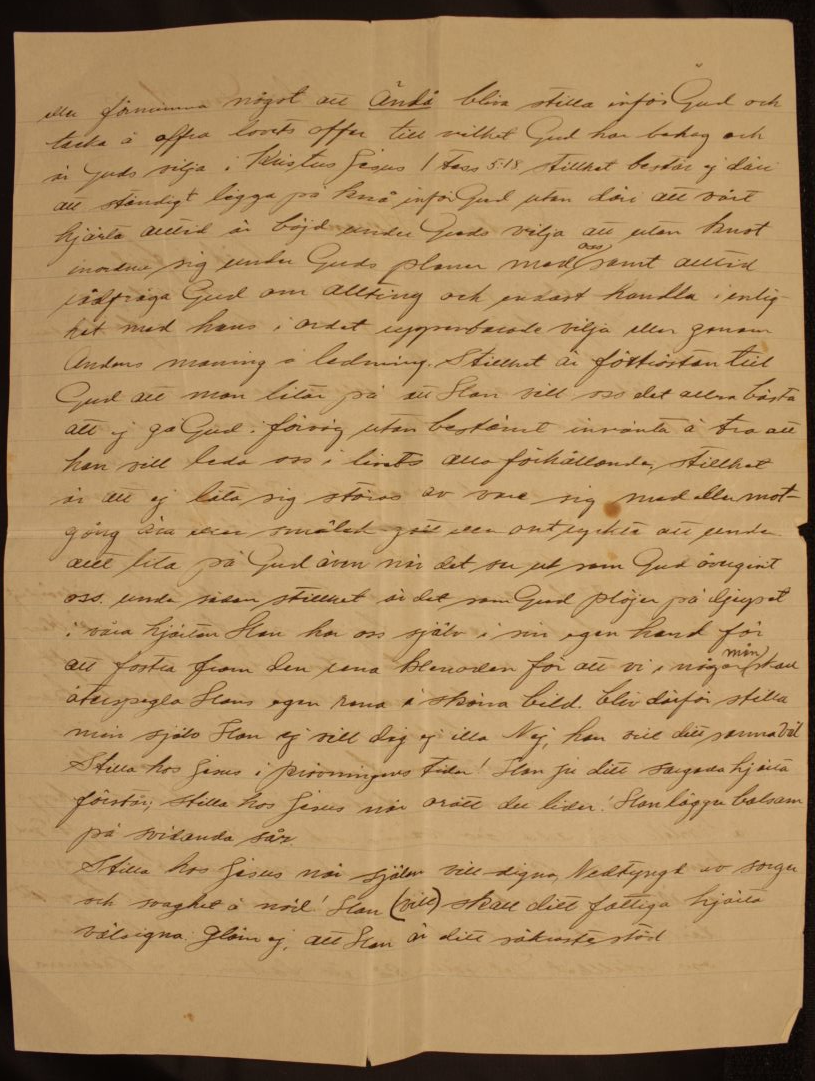 eller förnimma något att Ändå bliva stilla inför Gud och
tacka å offra lovets offer till vilket Gud har behag och
är Guds vilja i Kristus Jesus 1 Tess 5:18 stillhet består ej däri
att ständigt ligga på knä inför Gud utan däri att vårt
hjärta alltid är böjd under Guds vilja att utan knot
inordna sig under Guds planer med oss samt alltid
rådfråga Gud om allting och endast handla i enlig-
het med hans i ordet uppenbarade vilja eller genom
Andens maning å ledning. Stillhet är förtröstan till
Gud att man litar på att Han vill oss det allra bästa
att ej gå Gud i förväg utan bestämt invänta å tro att
han vill leda oss i livets alla förhållanden, stillhet
är att ej låta sig störas av vare sig med eller mot-
gång ära eller smälek gott eller ont rykte att
allt lita på Gud även när det ser ut som Gud övergivit
oss. under sådan stillhet är det som Gud plöjer på djupet
i våra hjärtan Han har oss själv i sin egen hand för
att fostra fram den rena klenoden för att vi i någon mån skall
återspegla Hans egen rena å sköna bild. bliv därför stilla
min själ Han ej vill dig ej illa Nej, han vill ditt sanna väl
Stilla hos Jesus i prövningens tider! Han ju ditt sargade hjärta
förstår; stilla hos Jesus när orätt du lider! Han lägger balsam
på svidande sår
Stilla hos Jesus när själen vill digna, Nedtyngd av sorger
och svaghet å nöd! Han (vill) skall ditt fattiga hjärta
välsigna. Glöm ej, att Han är ditt säkraste stöd